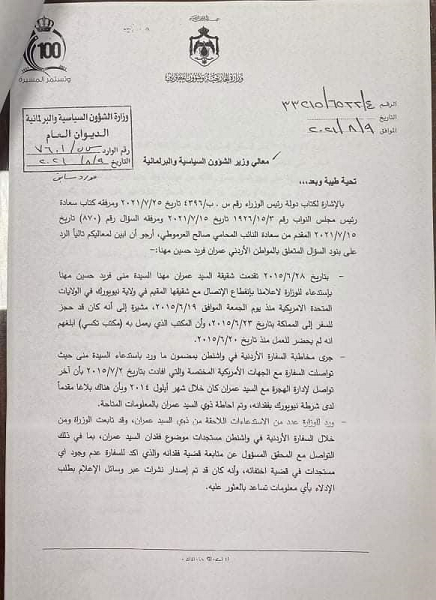 100
وتستمر المسيرة
وزارة الخارجية وشؤون المغتربين
وزارة الشؤون السياسية والبرلمانية
الديوان العام
رقم الوارد
التاريخ ٢٠٢١/٨/٩
الرقم
التاريخ
الموافق ٢٠٢١/٨/٩
معالي وزير الشؤون السياسية والبرلمانية
تحية طيبة وبعد،،،
بالإشارة لكتاب دولة رئيس الوزراء رقم س . ب/٤٣٩٦ تاريخ ٢٠٢١/٧/٢٥ ومرفقه كتاب سعادة
رئيس مجلس النواب رقم ١٩٢٦/١٥/٣ تاريخ ٢٠٢١/٧/١٥ ومرفقه السؤال رقم (٨٧٠) تاريخ
٢٠٢١/٧/١٥ المقدم من سعادة النائب المحامي صالح العرموطي، أرجو أن ابين لمعاليكم تالياً الرد
على بنود السؤال المتعلق بالمواطن الأردني عمران فريد حسين مهنا:-
- بتاريخ ٢٠١٥/٦/٢٨ تقدمت شقيقة السيد عمران مهنا السيدة منى فريد حسين مهنا
بإستدعاء للوزارة لاعلامنا بإنقطاع الإتصال مع شقيقها المقيم في ولاية نيويورك في الولايات
المتحدة الامريكية منذ يوم الجمعة الموافق ٢٠١٥/٦/١٩، مشيرة إلى أنه كان قد حجز
للسفر إلى المملكة بتاريخ ٢٠١٥/٦/٢٣، وأن المكتب الذي يعمل به (مكتب تكسي) ابلغهم
انه لم يحضر للعمل منذ تاريخ ٢٠١٥/٦/٢٠.
- جرى مخاطبة السفارة الأردنية في واشنطن بمضمون ما ورد باستدعاء السيدة منى حيث
تواصلت السفارة مع الجهات الأمريكية المختصة والتي افادت بتاريخ ٢٠١٥/٧/٢ بأن آخر
تواصل لإدارة الهجرة مع السيد عمران كان خلال شهر أيلول ٢٠١٤ وبأن هناك بلاغاً مقدماً
لدى شرطة نيويورك بفقدانه، وتم احاطة ذوي السيد عمران بالمعلومات المتاحة.
- ورد للوزارة عدد من الاستدعاءات اللاحقة من ذوي السيد عمران، وقد تابعت الوزراة ومن
خلال السفارة الأردنية في واشنطن مستجدات موضوع فقدان السيد عمران، بما في ذلك
التواصل مع المحقق المسؤول عن متابعة قضية فقدانه والذي اكد للسفارة عدم وجود اي
مستجدات في قضية اختفائه، وأنه كان قد تم إصدار نشرات عبر وسائل الإعلام بطلب
الإدلاء بأي معلومات تساعد بالعثور عليه.